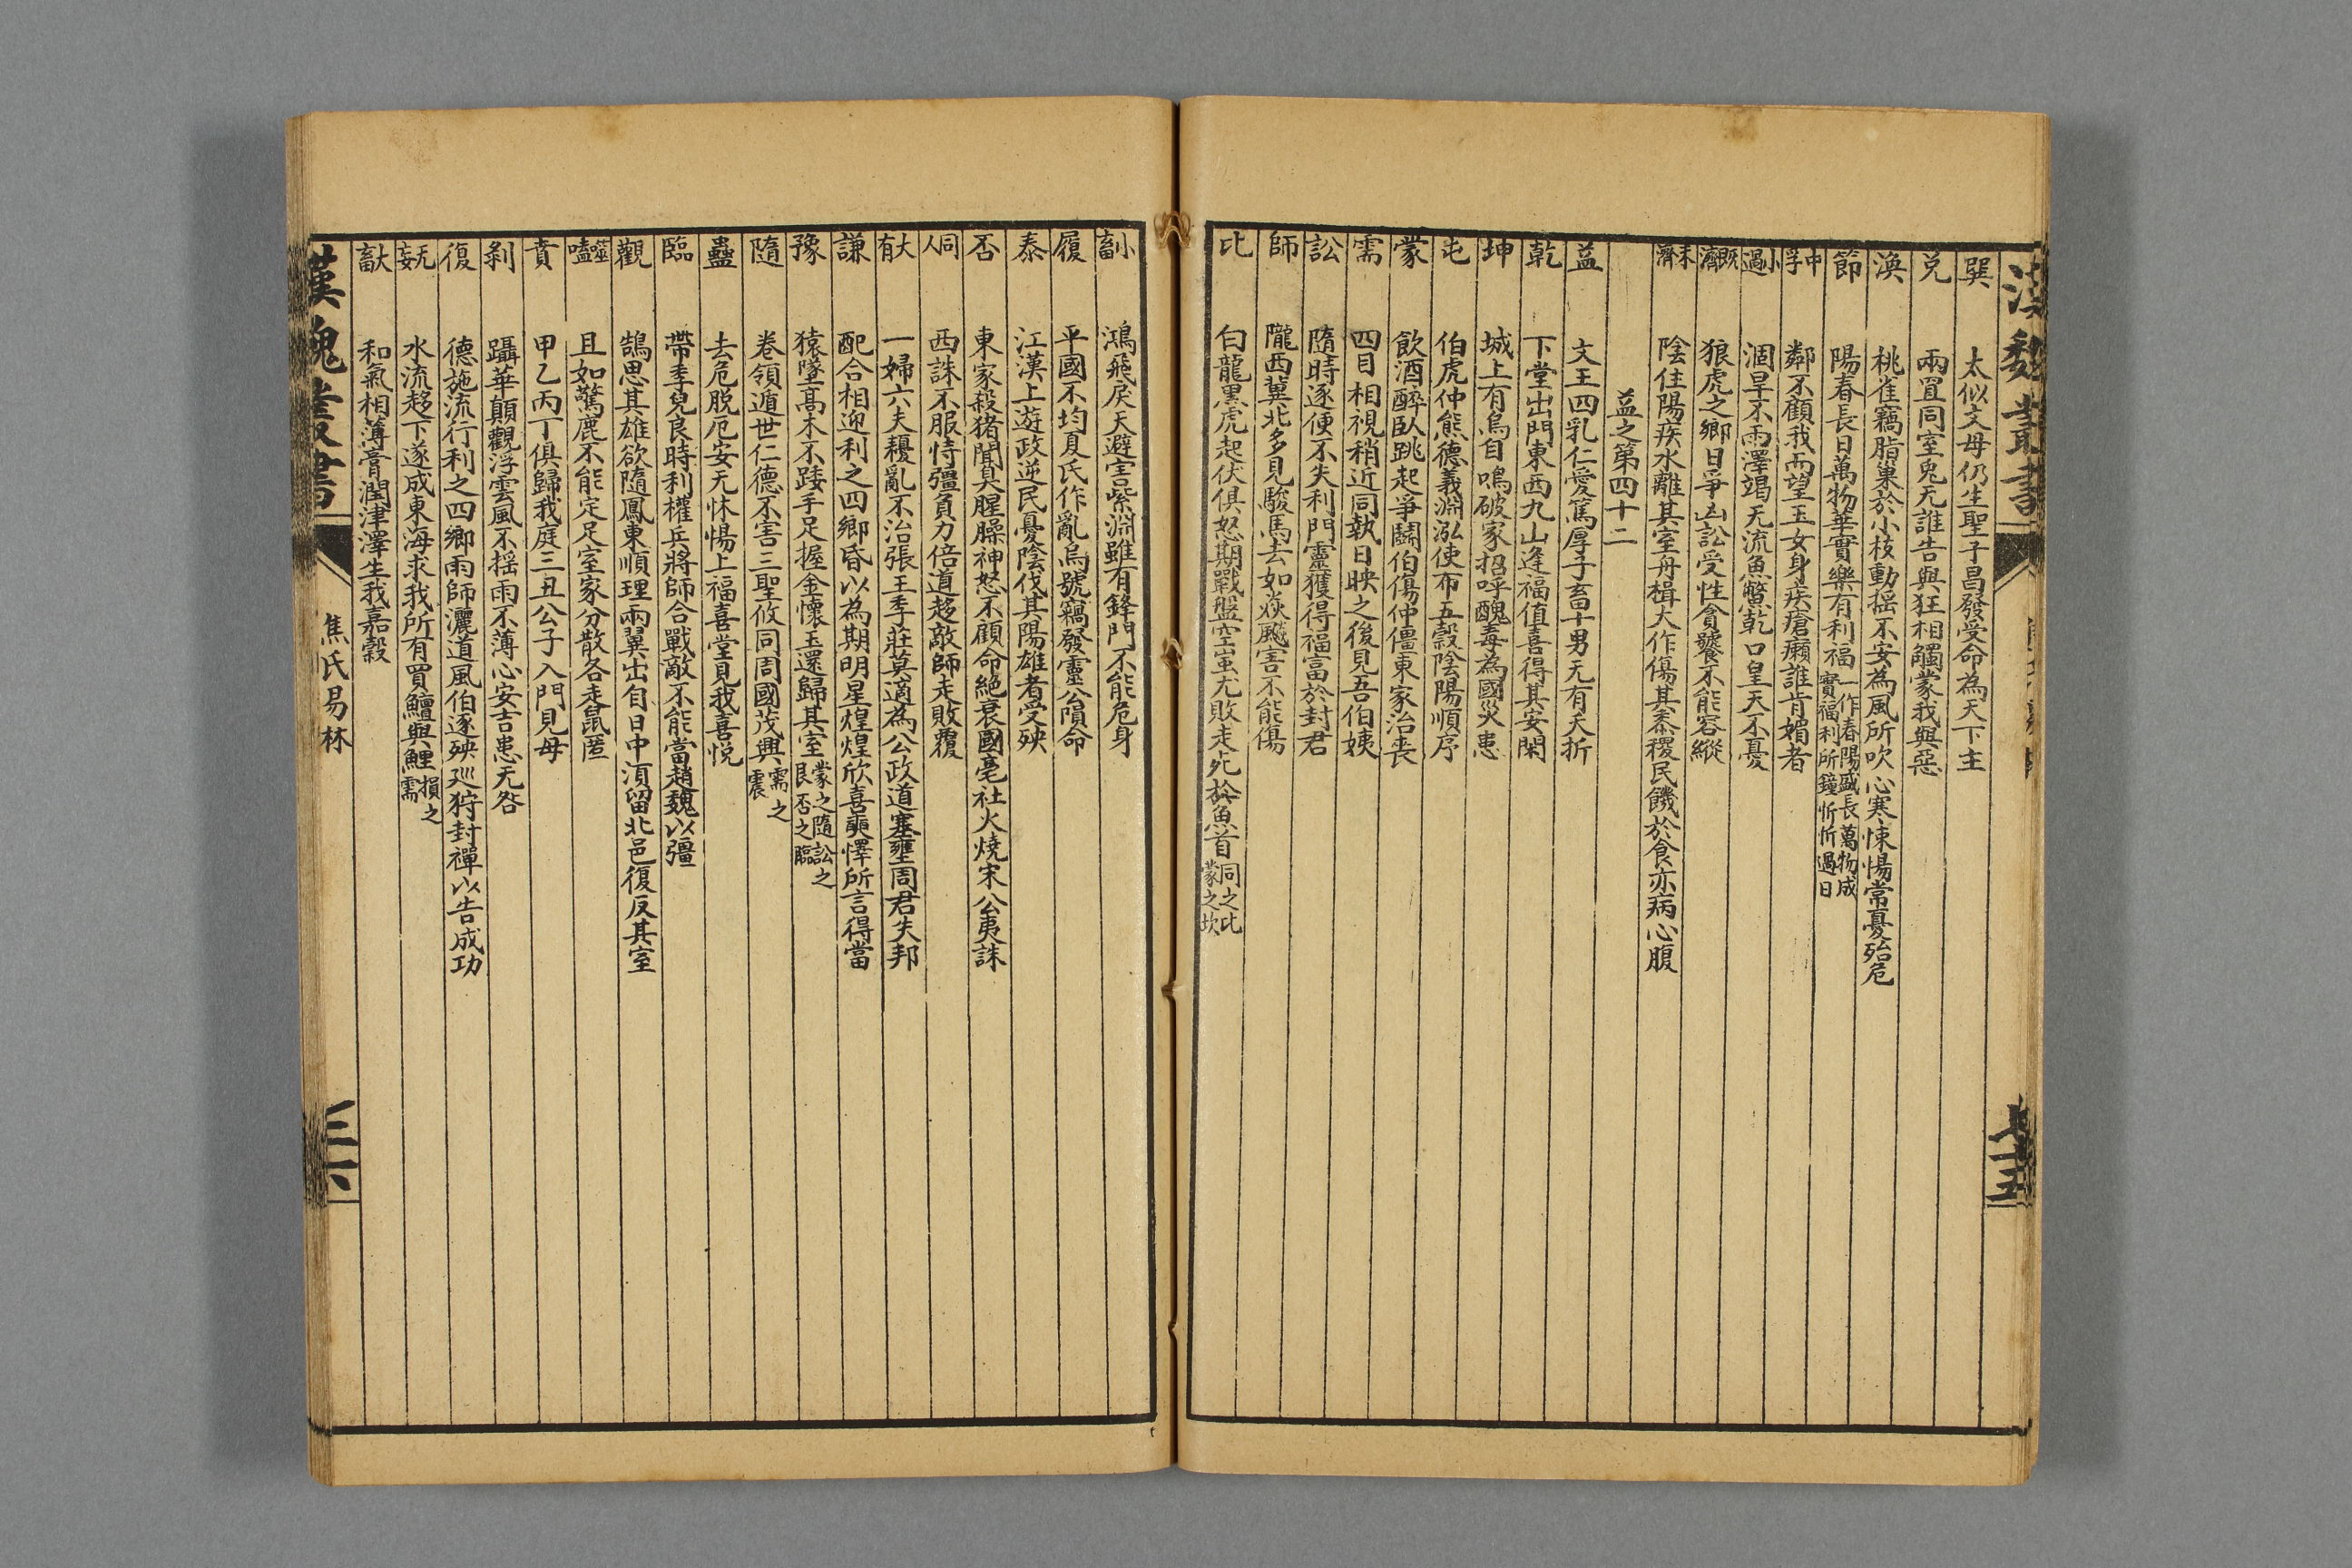 漢魏叢書
巽 太似文母仍生聖子昌發受命為天下主
兌 兩置同室兔无誰告與狂相觸蒙我與惡
渙 桃雀竊脂巢於小枝動搖不安為風所吹心寒悚惕常憂殆危
節 陽春長日萬物華實樂有利福一作春陽盛長萬物成實福利所鐘忻忻過日
中孚 鄰不顧我而望玉女身疾瘡癩誰肯媚者
小過 涸旱不雨澤竭无流魚鱉乾口皇天不憂
既濟 狼虎之鄉日爭凶訟受性貪饕不能容縱
未濟 陰住陽疾水離其室舟楫大作傷其黍稷民饑於食亦病心腹
益之第四十二
益 文王四乳仁愛篤厚子畜十男无有夭折
乾 下堂出門東西九山逢福值喜得其安閑
坤 城上有烏自鳴破家招呼醜毒為國災患
屯 伯虎仲熊德義淵泓使布五穀陰陽順序
蒙 飲酒醉臥跳起爭鬪伯傷仲僵東家治喪
需 四目相視稍近同執日昳之後見吾伯姨
訟 隨時逐便不失利門靈獲得福富於封君
師 隴西冀北多見駿馬去如焱飈害不能傷
比 白龍黑虎起伏俱怒期戰盤空蚩尤敗走死於魚首同之比蒙之坎
小畜 鴻飛戾天避害紫淵雖有鋒門不能危身
履 平國不均夏氏作亂烏號竊發靈公隕命
泰 江漢上遊政逆民憂陰伐其陽雄者受殃
否 東家殺猪聞臭腥臊神怒不顧命絕衰國亳社火燒宋公夷誅
同人 西誅不服恃彊負力倍道趍敵師走敗覆
大有 一婦六夫擾亂不治張王季莊莫適為公政道塞壅周君失邦
謙 配合相迎利之四鄉昏以為期明星煌煌欣喜奭懌所言得當
豫 猿墜高木不踒手足握金懷玉還歸其室蒙之隨訟之艮否之臨
隨 卷領遁世仁德不害三聖攸同周國茂興需之震
蠱 去危脫厄安无怵惕上福喜堂見我喜悅
臨 帶季兒良時利權兵將師合戰敵不能當趙魏以彊
觀 鵠思其雄欲隨鳳東順理兩翼出自日中須留北邑復反其室
噬嗑 且如驚鹿不能定足室家分散各走鼠匿
賁 甲乙丙丁俱歸我庭三丑公子入門見母
剥 躡華顛觀浮雲風不搖雨不薄心安吉患无咎
復 德施流行利之四鄉雨師灑道風伯逐殃巡狩封禪以告成功
无妄 水流趍下遂成東海求我所有買鱣與鯉損之需
大畜 和氣相薄膏潤津澤生我嘉穀
漢魏叢書 焦氏易林 三六